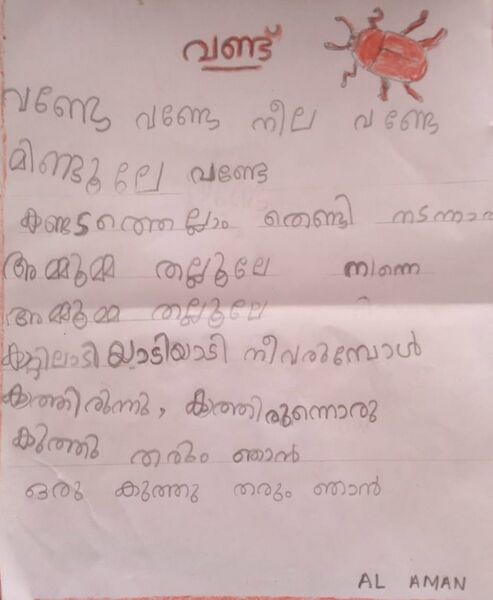 വണ്ട്
വണ്ടേ വണ്ടേ നീല വണ്ടേ
മിണ്ടൂലേ വണ്ടേ
കണ്ടടത്തെല്ലാം തെണ്ടി നടന്നാൽ
അമ്മൂമ്മ തല്ലൂലേ നിന്നെ
അമ്മൂമ്മ തല്ലൂലേ
കാറ്റിലാടിയാടിയാടി നീവരുമ്പോൾ
കാത്തിരുന്നു, കാത്തിരുന്നൊരു
കുത്തു തരും ഞാൻ
ഒരു കുത്തു തരും ഞാൻ
AL AMAN